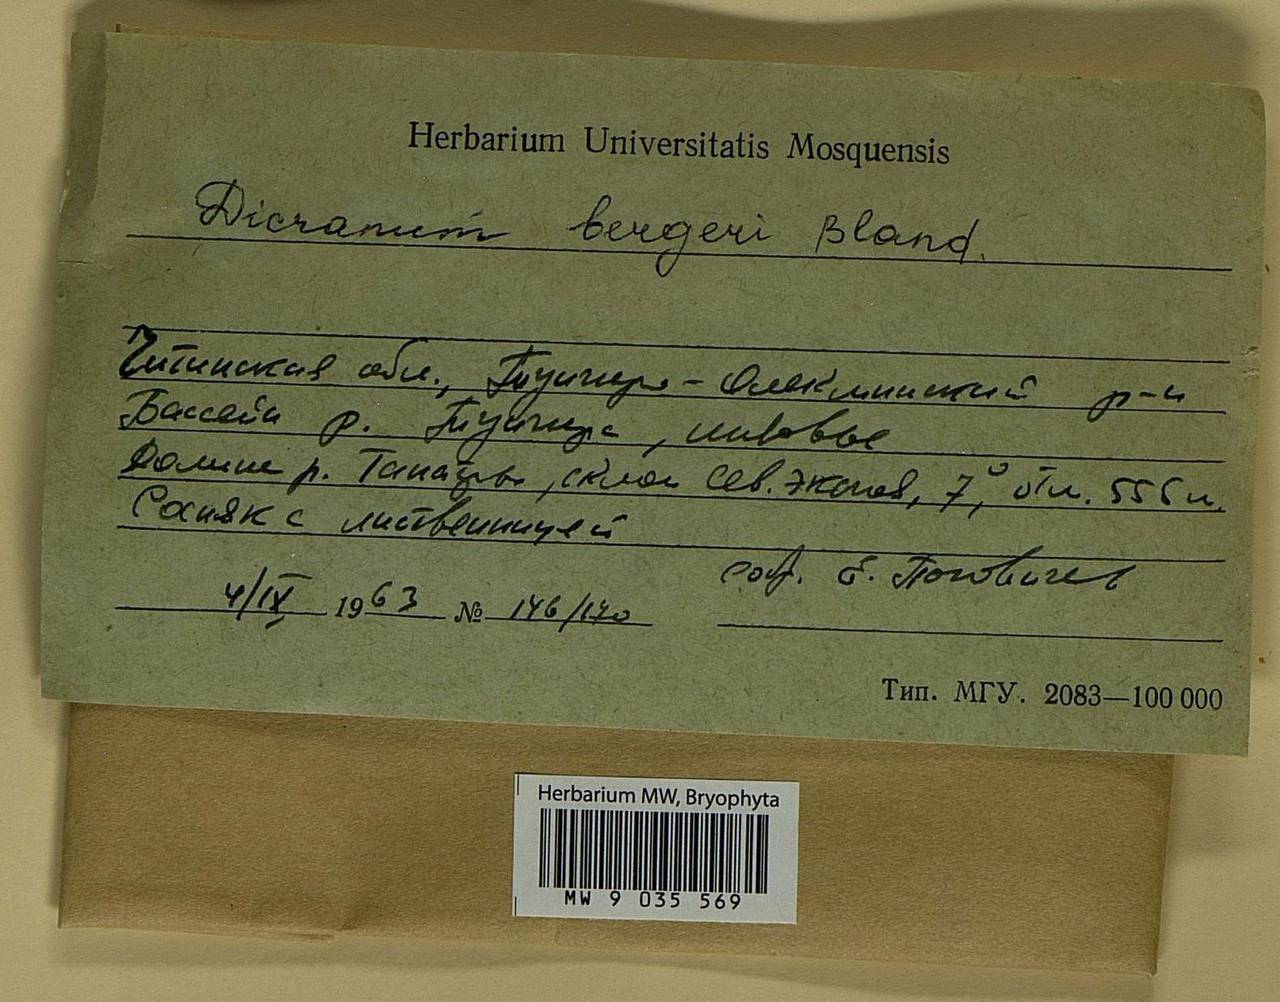 Herbarium Universitatis Mosquensis
Dicranum bergeri Bland.
Читинская обл., Тунгиро-Олекминский р-н
Бассейн р. Тунгира, низовье
долины р. , склон сев. экспоз, 7°, отм. 555 м.
Сосняк с лиственницей
соб. Б.
4/IX 1963 № 146/170
Тип. МГУ. 2083—100 000
Herbarium MW, Bryophyta
MW 9 035 569